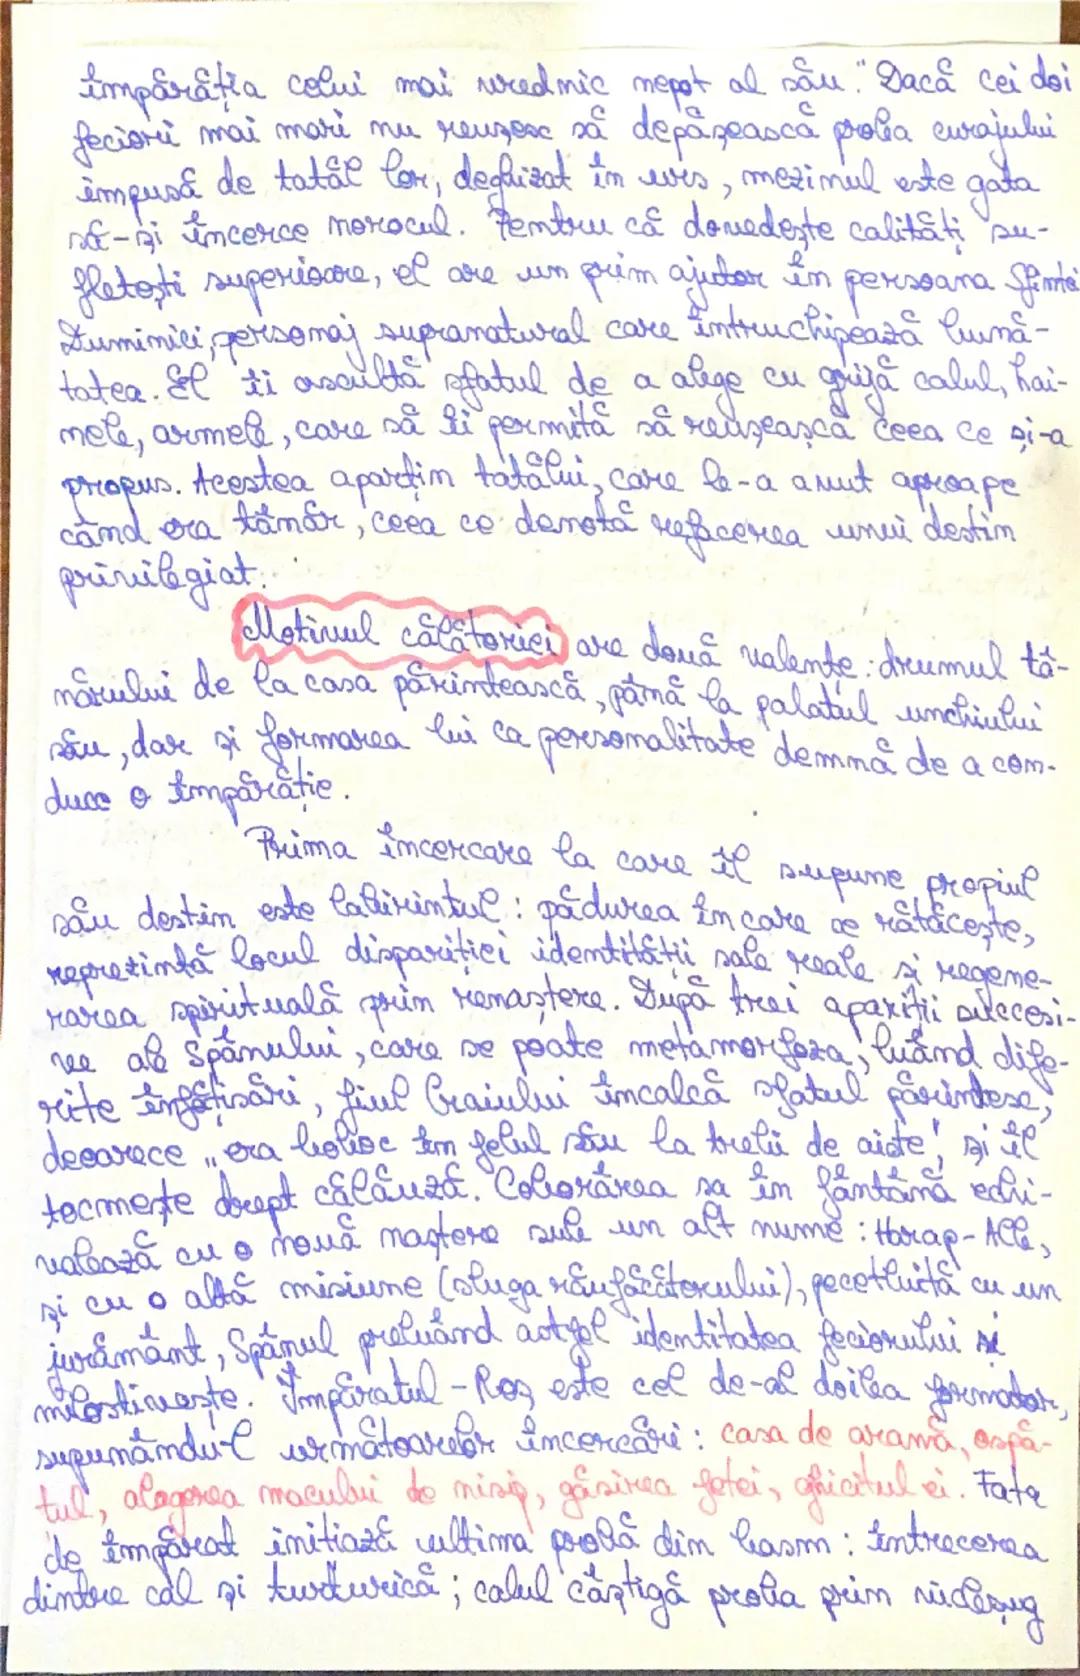 împărăția celui mai vrednic nepot al său." Dacă cei doi
feciori mai mari nu reușesc să depășească proba curajului
impusă de tatăl lor, deghizat în urs, mezinul este gata
să-și încerce norocul. Pentru că dovedește calități su-
fletești superioare, el are un prim ajutor în persoana Sfintei
Duminici, personaj supranatural care întruchipează bună-
tatea. El îi ascultă sfatul de a alege cu grijă calul, hai-
nele, armele, care să îi permită să reușească ceea ce și-a
propus. Acestea aparțin tatălui, care le-a avut aproape
când era tânăr, ceea ce denotă refacerea unui destin
privilegiat.
Motivul călătoriei are două valențe: drumul tâ-
nărului de la casa părintească, până la palatul unchiului
său, dar și formarea lui ca personalitate demnă de a con-
duce o împărăție.
Prima încercare la care îl supune propriul
său destin este labirintul: pădurea în care se rătăcește,
reprezintă locul dispariției identității sale reale și regene-
rarea spirituală prin renaștere. După trei apariții succesi-
ve ale Spânului, care se poate metamorfoza, luând dife-
rite înfățișări, fiul Craiului încalcă sfatul părintesc,
deoarece „era boboc în felul său la trebi de aiste", și îl
tocmește drept călăuză. Coborârea sa în fântână echi-
valează cu o nouă naștere sub un alt nume: Harap-Alb,
și cu o altă misiune (sluga răufăcătorului), pecetluită cu un
jurământ, Spânul preluând astfel identitatea feciorului și
milostivește. Împăratul-Roș este cel de-al doilea formator,
supunându-l următoarelor încercări: casa de aramă, ospă-
tul, alegerea macului de nisip, găsirea fetei, ghicitul ei. Fata
de împărat inițiază ultima probă din basm: întrecerea
dintre cal și turturică; calul câștigă proba prin vicleșug